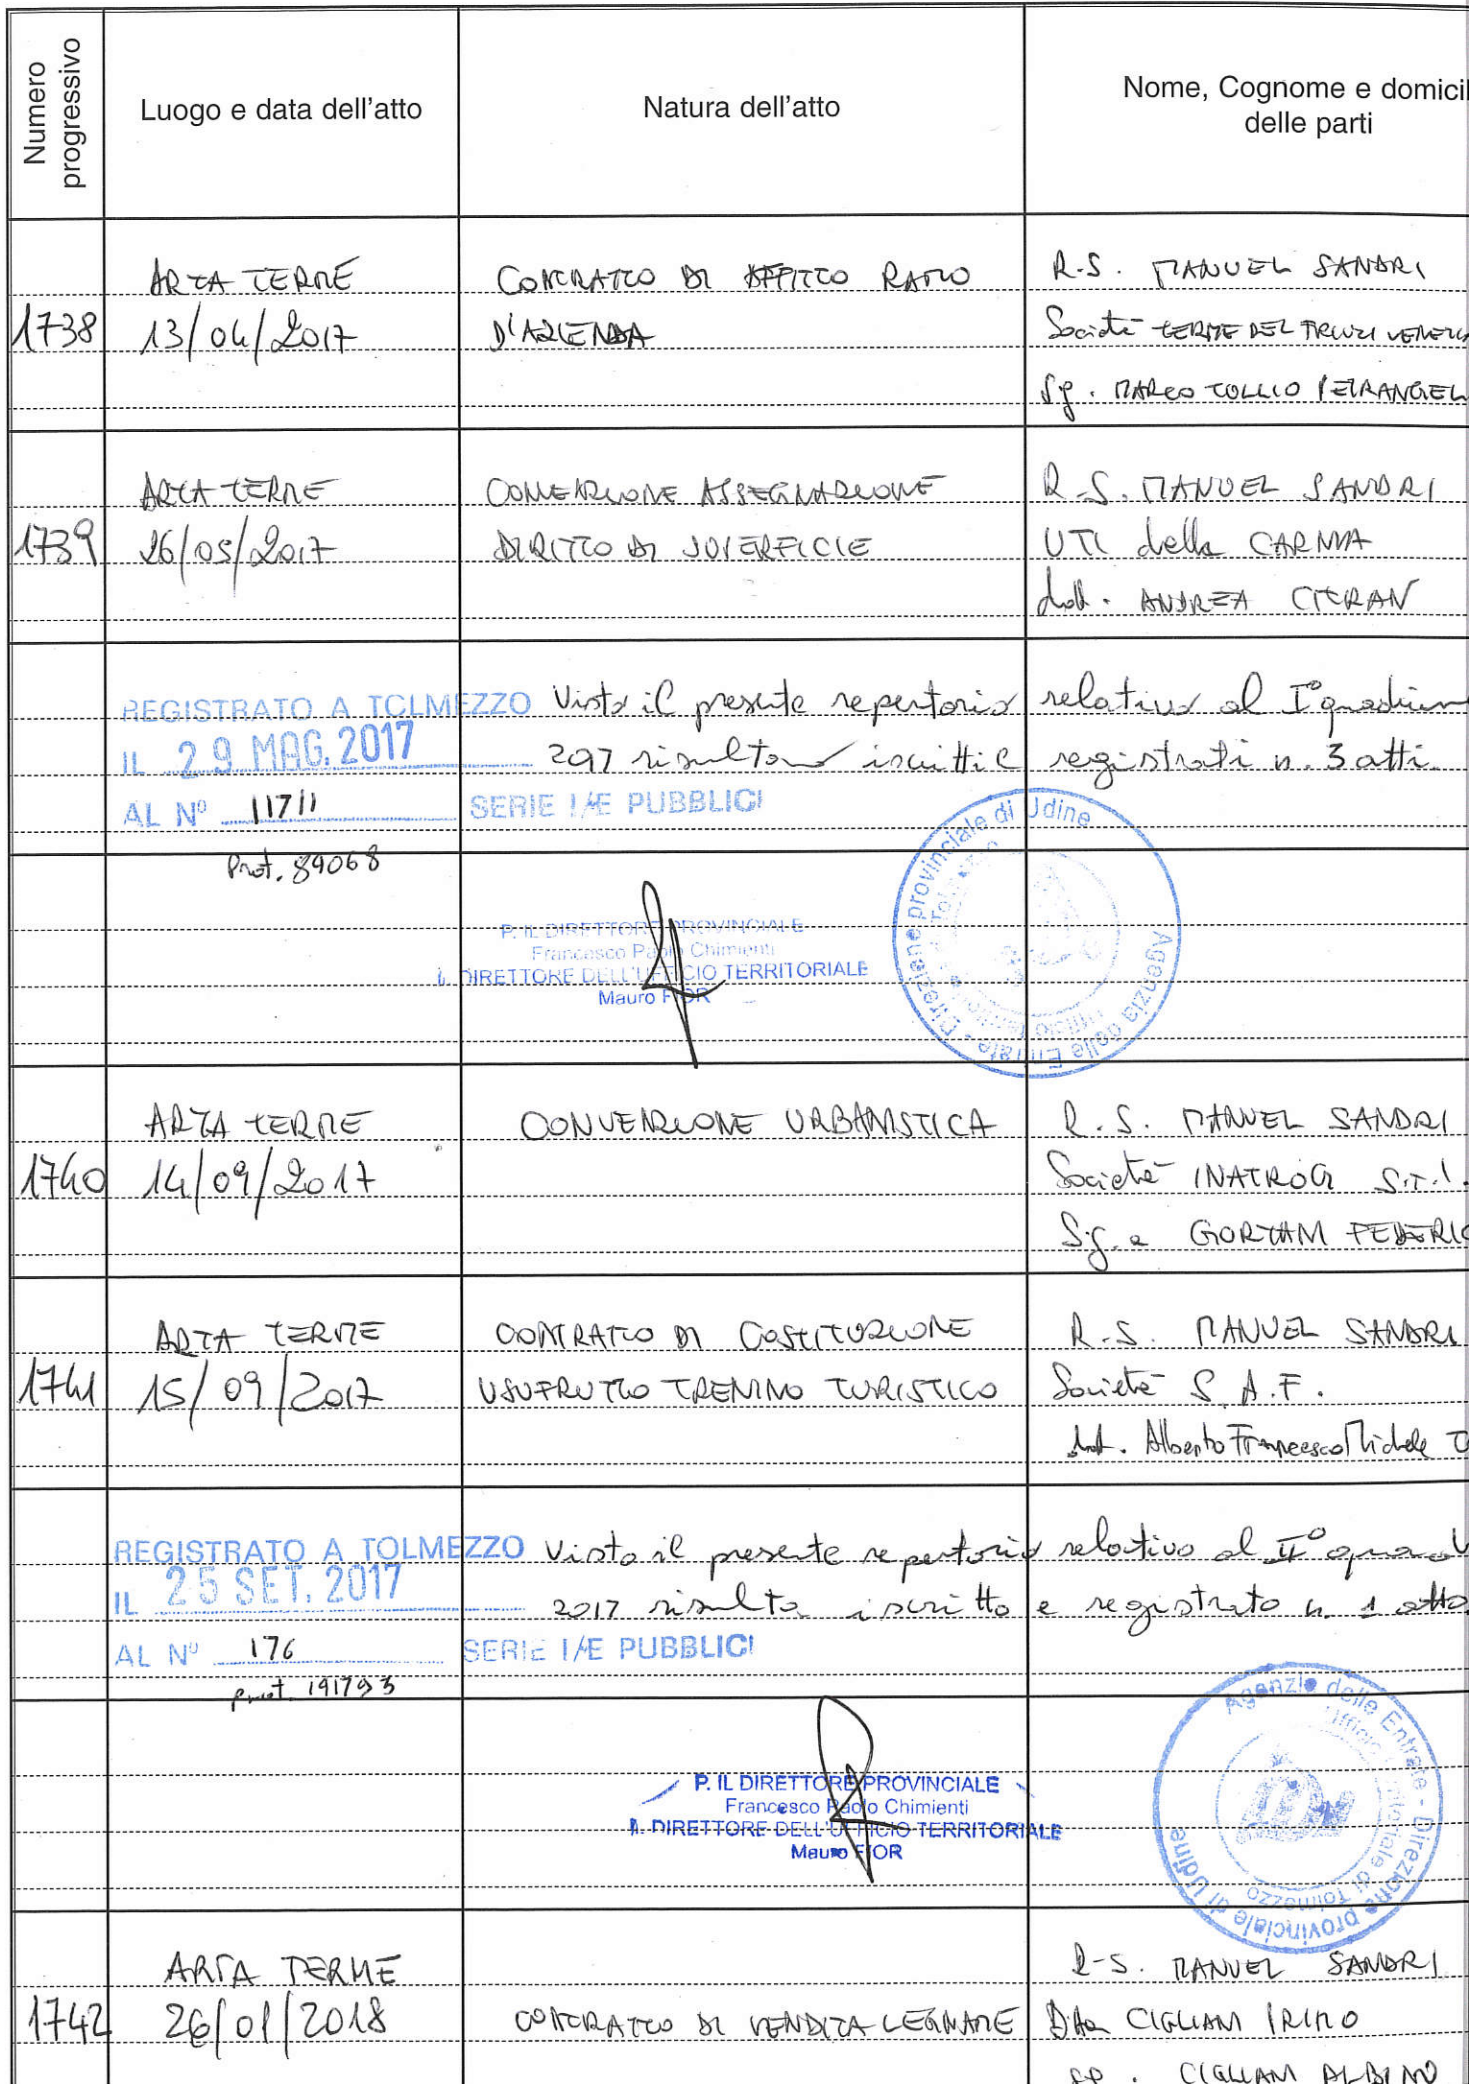 Numero progressivo
Luogo e data dell'atto
Natura dell'atto
Nome, Cognome e domicil
delle parti
1738
ARTA TERME
13/04/2017
CONTRATTO DI AFFITTO RAMO
D'AZIENDA
R.S. MANUEL SANDRI
Società TERME DEL FRIULI VENEZIA
Sig. MARCO TULLIO PETRANGEL
1739
ARTA TERME
26/05/2017
CONVENZIONE ASSEGNAZIONE
DIRITTO DI SUPERFICIE
R.S. MANUEL SANDRI
UTI della CARNIA
dott. ANDREA CITRAN
REGISTRATO A TOLMEZZO
IL 29 MAG. 2017
AL N° 117/1 SERIE I/E PUBBLICI
Prot. 89068
Visto il presente repertorio relativo al I° quadrim
2017 risultano iscritti e registrati n. 3 atti.
P. IL DIRETTORE PROVINCIALE
Francesco Paolo Chimienti
IL DIRETTORE DELL'UFFICIO TERRITORIALE
Mauro FIOR
Agenzia delle Entrate - Direzione provinciale di Udine
Ufficio territoriale di Tolmezzo
1740
ARTA TERME
14/09/2017
CONVENZIONE URBANISTICA
R.S. MANUEL SANDRI
Società S.r.l.
GORTANI FEDERIC
1741
ARTA TERME
15/09/2017
CONTRATTO DI COSTITUZIONE
USUFRUTTO TRENINO TURISTICO
R.S. MANUEL SANDRI
Società S.A.F.
dott. Alberto Francesco Michele
REGISTRATO A TOLMEZZO
IL 25 SET. 2017
AL N° 176 SERIE I/E PUBBLICI
prot. 191793
Visto il presente repertorio relativo al II° quad
2017 risulta iscritto e registrato n. 1 atto
P. IL DIRETTORE PROVINCIALE
Francesco Paolo Chimienti
IL DIRETTORE DELL'UFFICIO TERRITORIALE
Mauro FIOR
Agenzia delle Entrate - Direzione provinciale di Udine
Ufficio territoriale di Tolmezzo
1742
ARTA TERME
26/01/2018
CONTRATTO DI VENDITA LEGNAME
R.S. MANUEL SANDRI
Ditta CIGLIANI IRINO
CIGLIANI ALBINO